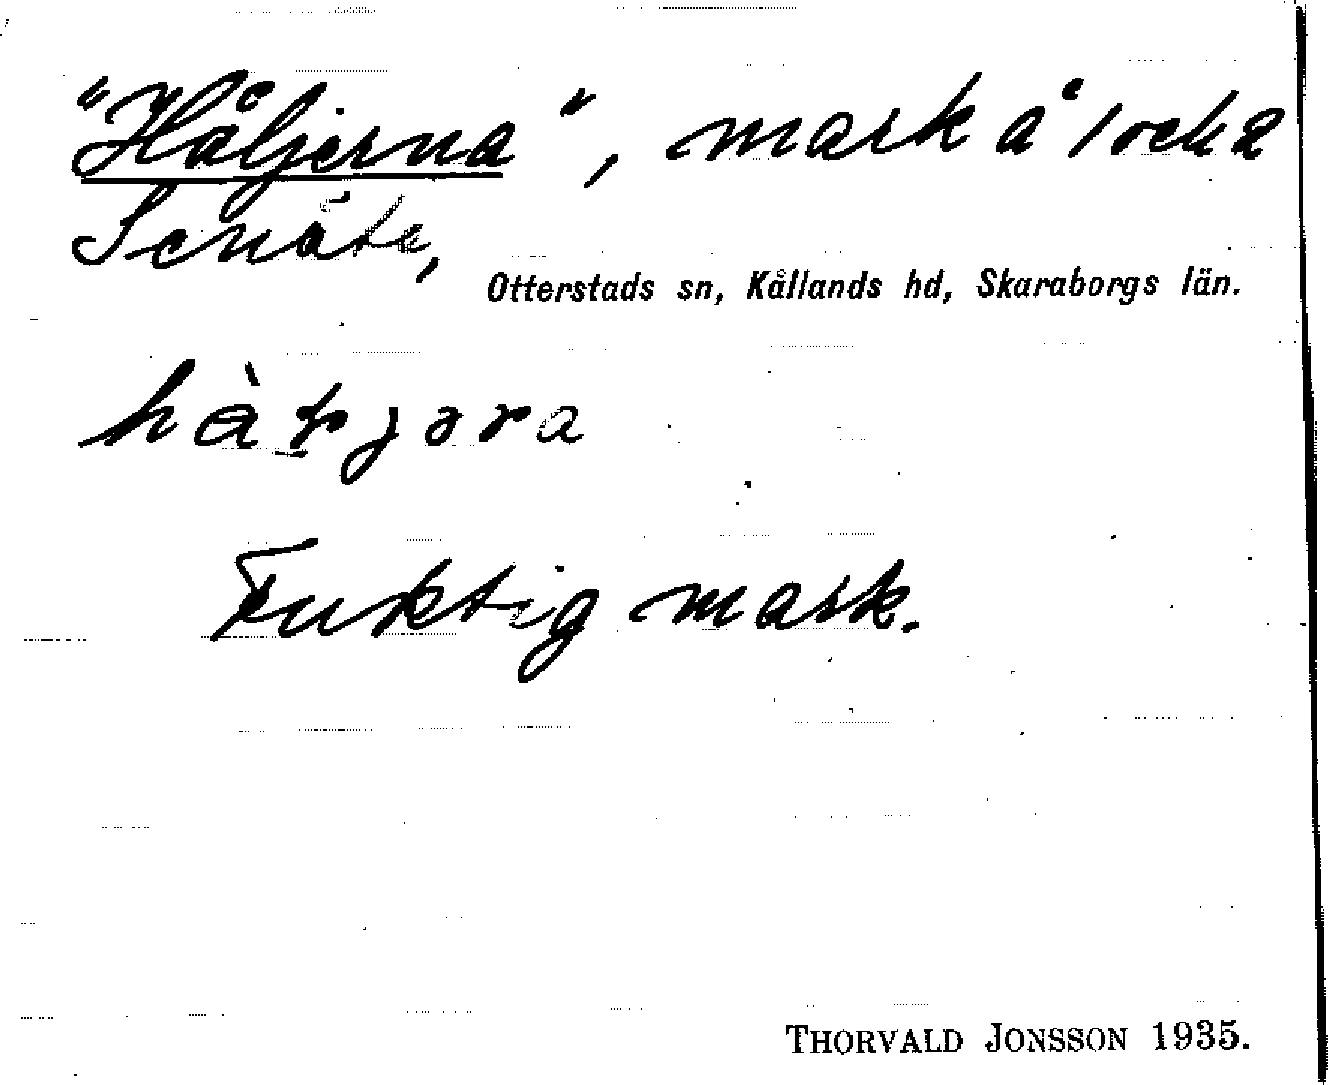 "Håljerna", mark å
Senäte,
Otterstads sn, Kållands hd, Skaraborgs län.
Fuktig mark.
THORVALD JONSSON 1935.